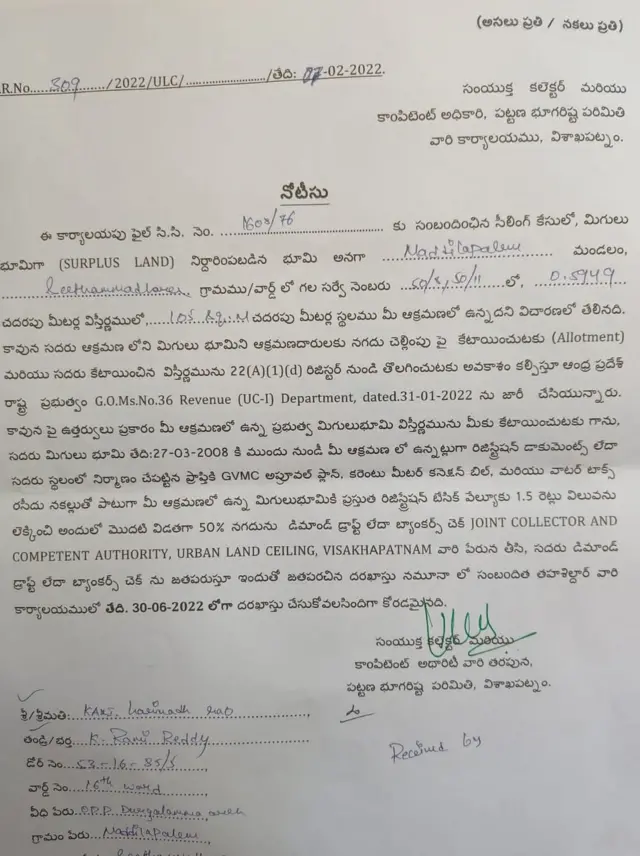 (అసలు ప్రతి / నకలు ప్రతి)
R.No.....309....../2022/ULC/................../తేది: 07-02-2022.
సంయుక్త కలెక్టర్ మరియు
కాంపిటెంట్ అధికారి, పట్టణ భూగరిష్ట పరిమితి
వారి కార్యాలయము, విశాఖపట్నం.
నోటీసు
ఈ కార్యాలయపు ఫైల్ సి.సి. నెం. ....1603/76.... కు సంబందించిన సీలింగ్ కేసులో, మిగులు
భూమిగా (SURPLUS LAND) నిర్దారింపబడిన భూమి అనగా ....Maddilapalem.... మండలం,
....Seethammadhara.... గ్రామము/వార్డ్ లో గల సర్వే నెంబరు ...50/8, 50/11...లో, ...0.5949...
చదరపు మీటర్ల విస్తీర్ణములో,....105 Sq.M చదరపు మీటర్ల స్థలము మీ ఆక్రమణలో ఉన్నదని విచారణలో తేలినది.
కావున సదరు ఆక్రమణ లోని మిగులు భూమిని ఆక్రమణదారులకు నగదు చెల్లింపు పై కేటాయించుటకు (Allotment)
మరియు సదరు కేటాయించిన విస్తీర్ణమును 22(A)(1)(d) రిజిస్టర్ నుండి తొలగించుటకు అవకాశం కల్పిస్తూ ఆంధ్ర ప్రదేశ్
రాష్ట్ర ప్రభుత్వం G.O.Ms.No.36 Revenue (UC-I) Department, dated.31-01-2022 ను జారీ చేసియున్నారు.
కావున పై ఉత్తర్వులు ప్రకారం మీ ఆక్రమణలో ఉన్న ప్రభుత్వ మిగులుభూమి విస్తీర్ణమును మీకు కేటాయించుటకు గాను,
సదరు మిగులు భూమి తేది:27-03-2008 కి ముందు నుండి మీ ఆక్రమణ లో ఉన్నట్లుగా రిజిస్ట్రేషన్ డాకుమెంట్స్ లేదా
సదరు స్థలంలో నిర్మాణం చేపట్టిన ప్రాప్తికి GVMC అప్రూవల్ ప్లాన్, కరెంటు మీటర్ కనెక్షన్ బిల్, మరియు వాటర్ టాక్స్
రసీదు నకల్లుతో పాటుగా మీ ఆక్రమణలో ఉన్న మిగులుభూమికి ప్రస్తుత రిజిస్ట్రేషన్ బేసిక్ వేల్యూకు 1.5 రెట్లు విలువను
లెక్కించి అందులో మొదటి విడతగా 50% నగదును డిమాండ్ డ్రాఫ్ట్ లేదా బ్యాంకర్స్ చెక్ JOINT COLLECTOR AND
COMPETENT AUTHORITY, URBAN LAND CEILING, VISAKHAPATNAM వారి పేరున తీసి, సదరు డిమాండ్
డ్రాఫ్ట్ లేదా బ్యాంకర్స్ చెక్ ను జతపరుస్తూ ఇందుతో జతపరచిన దరఖాస్తు నమూనా లో సంబందిత తహశీల్దార్ వారి
కార్యాలయములో తేది. 30-06-2022 లోగా దరఖాస్తు చేసుకోవలసిందిగా కోరడమైనది.
సంయుక్త కలెక్టర్ మరియు
కాంపిటెంట్ అథారిటీ వారి తరపున,
పట్టణ భూగరిష్ట పరిమితి, విశాఖపట్నం.
శ్రీ/శ్రీమతి:..KAKS. harinadh rao..........,
తండ్రి/భర్త..K. Rami Reddy........,
Received by
డోర్ నెం...53-16-85/5.........,
వార్డ్ నెం...16th ward..........,
వీధి పేరు..OPP. Durgalamma.........
గ్రామం పేరు...Maddilapalem........,